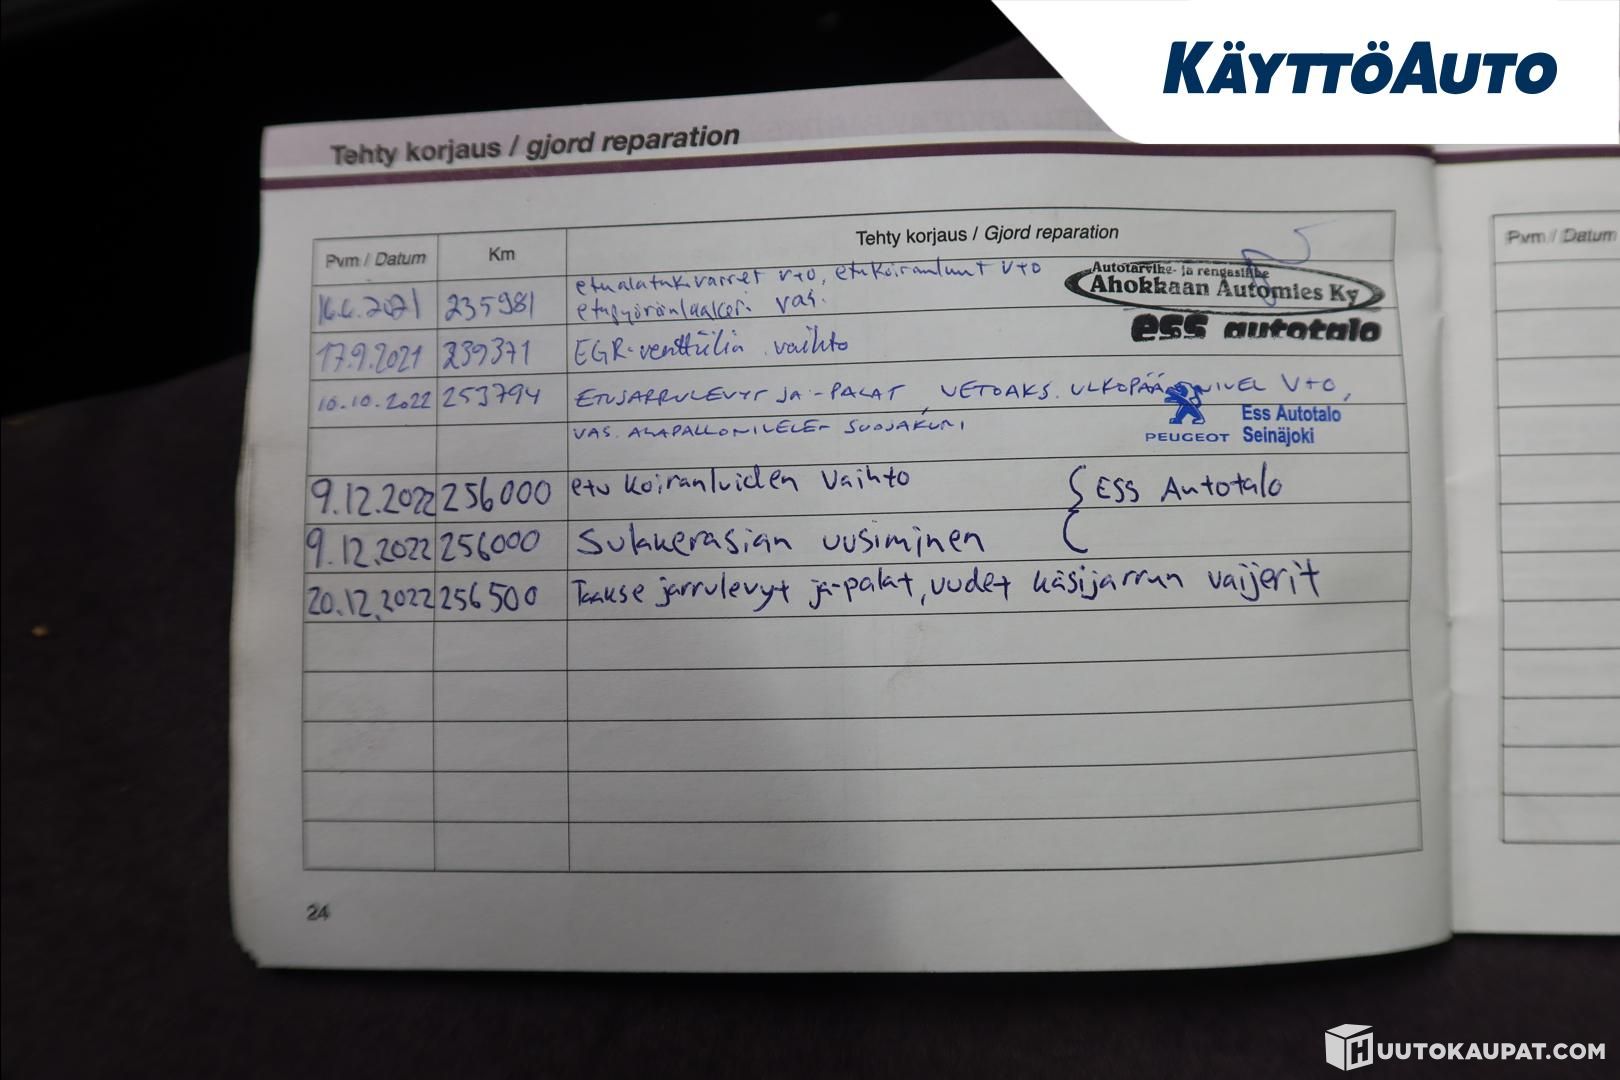 KÄYTTÖAUTO
Tehty korjaus / gjord reparation
Pvm / Datum
Km
Tehty korjaus / Gjord reparation
16.6.2021 235981 etualatukivarret v+o, etukoiranluut v+o
etupyöränlaakeri vas.
Autotarvike- ja rengasliike
Ahokkaan Automies Ky
ess autotalo
17.9.2021 239371 EGR-venttiilin vaihto
10.10.2022 253794 ETUJARRULEVYT JA -PALAT, VETOAKS. ULKOPÄÄ NIVEL V+O,
VAS. ALAPALLONIVELEN SUOJAKUMI
PEUGEOT
Ess Autotalo
Seinäjoki
9.12.2022 256000 etu koiranluiden vaihto { ESS Autotalo
9.12.2022 256000 Sulakerasian uusiminen
20.12.2022 256500 Taakse jarrulevyt ja-palat, uudet käsijarrun vaijerit
24
Pvm / Datum
HUUTOKAUPAT.COM